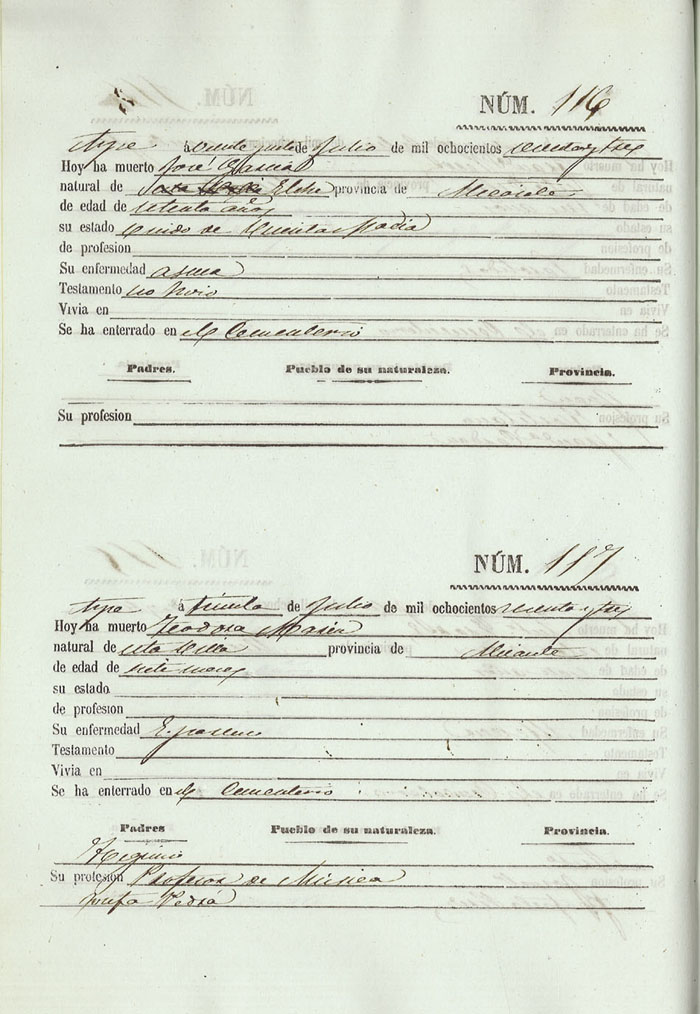 NÚM. 116
Aspe á veinte siete de Julio de mil ochocientos
Hoy ha muerto José García
natural de Elche provincia de Alicante
de edad de setenta años
su estado Viudo de Vicenta María
de profesion
Su enfermedad asma
Testamento no hizo
Vivia en
Se ha enterrado en el Cementerio
Padres. Pueblo de su naturaleza. Provincia.
Su profesion
NÚM. 117
Aspe á treinta de Julio de mil ochocientos
Hoy ha muerto Teodora
natural de esta Villa provincia de Alicante
de edad de siete meses
su estado
de profesion
Su enfermedad
Testamento
Vivia en
Se ha enterrado en el Cementerio
Padres Pueblo de su naturaleza. Provincia.
Higinio
Su profesion Profesor de Música